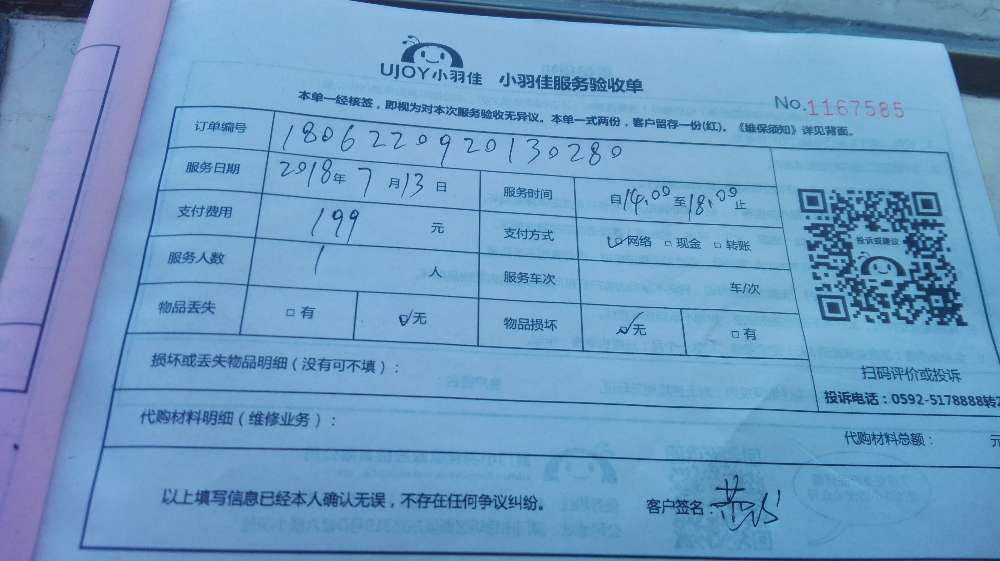 UJOY小羽佳 小羽佳服务验收单
No.1167585
本单一经核签，即视为对本次服务验收无异议。本单一式两份，客户留存一份(红)。《维保须知》详见背面。
订单编号 180622092013028​0
服务日期 2018年 7月13日 服务时间 自14:00至18:00止
支付费用 199 元 支付方式 网络 □ 现金 □ 转账
服务人数 1 人 服务车次 车/次
物品丢失 □ 有 ☑无 物品损坏 ☑无 □ 有
投诉或建议
损坏或丢失物品明细（没有可不填）：
扫码评价或投诉
投诉电话：0592-5178888转2
代购材料明细（维修业务）：
代购材料总额： 元
以上填写信息已经本人确认无误，不存在任何争议纠纷。
客户签名：